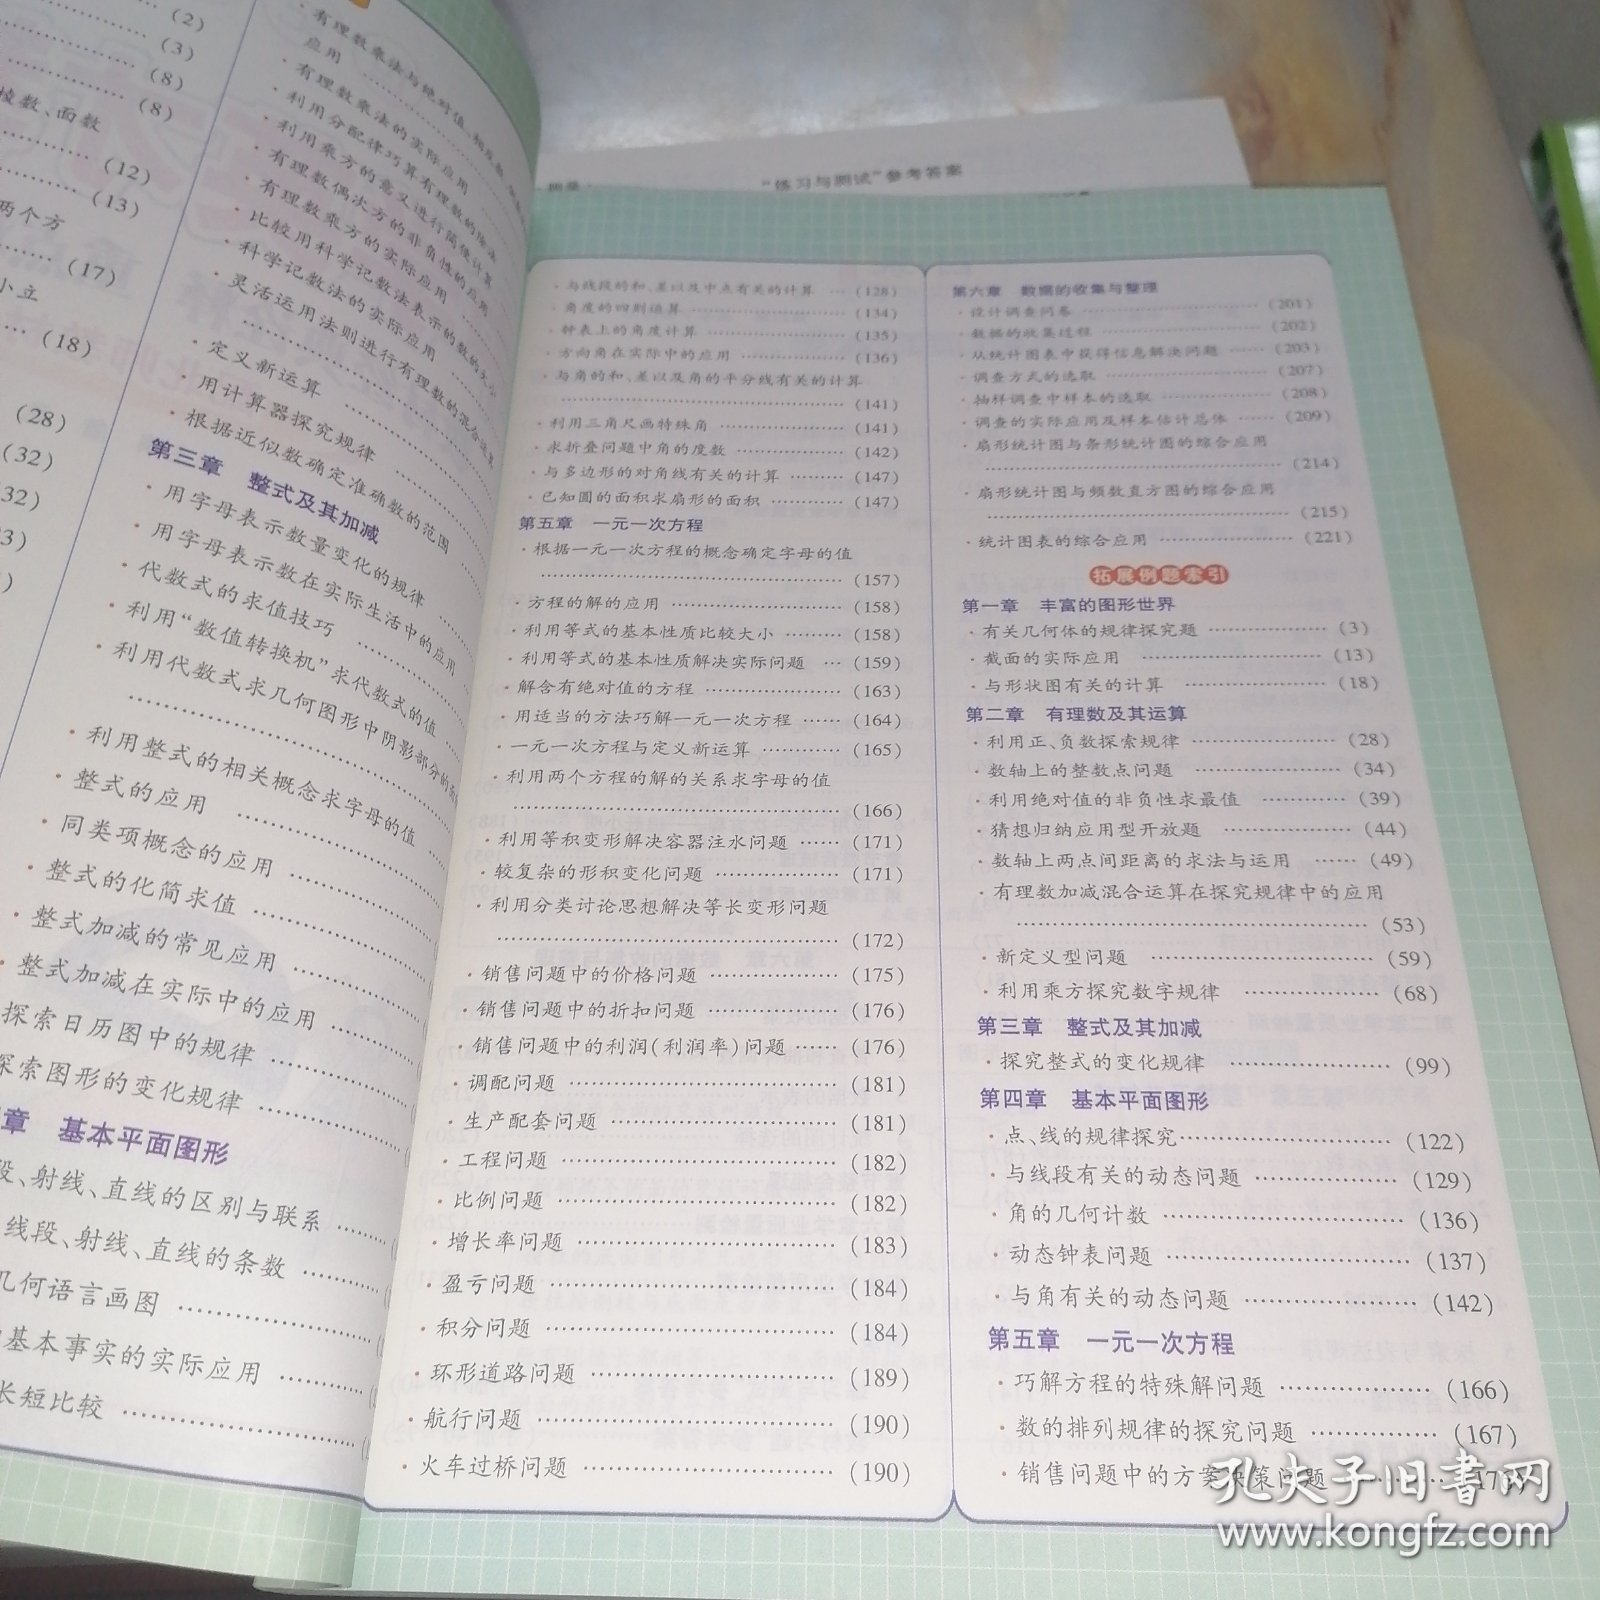 (2)
(3)
(8)
(8)
棱数、面数
(12)
(13)
两个方
(17)
小立
(18)
(28)
(32)
32)
3)
)
· 有理数乘法与绝对值、相反数
应用
· 有理数乘法的实际应用
· 利用分配律巧算有理数的除法
· 利用乘方的意义进行简便计算
· 有理数偶次方的非负性的应用
· 有理数乘方的实际应用
· 比较用科学记数法表示的数的大小
· 科学记数法的实际应用
· 灵活运用法则进行有理数的混合运算
· 定义新运算
· 用计算器探究规律
· 根据近似数确定准确数的范围
第三章 整式及其加减
· 用字母表示数量变化的规律
· 用字母表示数在实际生活中的应用
· 代数式的求值技巧
· 利用“数值转换机”求代数式的值
· 利用代数式求几何图形中阴影部分的面积
· 利用整式的相关概念求字母的值
· 整式的应用
· 同类项概念的应用
· 整式的化简求值
· 整式加减的常见应用
· 整式加减在实际中的应用
探索日历图中的规律
探索图形的变化规律
章 基本平面图形
段、射线、直线的区别与联系
线段、射线、直线的条数
几何语言画图
基本事实的实际应用
长短比较
“练习与测试”参考答案
· 与线段的和、差以及中点有关的计算 … (128)
· 角度的四则运算 …… (134)
· 钟表上的角度计算 …… (135)
· 方向角在实际中的应用 …… (136)
· 与角的和、差以及角的平分线有关的计算
…… (141)
· 利用三角尺画特殊角 …… (141)
· 求折叠问题中角的度数 …… (142)
· 与多边形的对角线有关的计算 …… (147)
· 已知圆的面积求扇形的面积 …… (147)
第五章 一元一次方程
· 根据一元一次方程的概念确定字母的值
…… (157)
· 方程的解的应用 …… (158)
· 利用等式的基本性质比较大小 …… (158)
· 利用等式的基本性质解决实际问题 … (159)
· 解含有绝对值的方程 …… (163)
· 用适当的方法巧解一元一次方程 …… (164)
· 一元一次方程与定义新运算 …… (165)
· 利用两个方程的解的关系求字母的值
…… (166)
· 利用等积变形解决容器注水问题 …… (171)
· 较复杂的形积变化问题 …… (171)
· 利用分类讨论思想解决等长变形问题
…… (172)
· 销售问题中的价格问题 …… (175)
· 销售问题中的折扣问题 …… (176)
· 销售问题中的利润(利润率)问题 …… (176)
· 调配问题 …… (181)
· 生产配套问题 …… (181)
· 工程问题 …… (182)
· 比例问题 …… (182)
· 增长率问题 …… (183)
· 盈亏问题 …… (184)
· 积分问题 …… (184)
· 环形道路问题 …… (189)
· 航行问题 …… (190)
· 火车过桥问题 …… (190)
第六章 数据的收集与整理
· 设计调查问卷 …… (201)
· 数据的收集过程 …… (202)
· 从统计图表中获得信息解决问题 …… (203)
· 调查方式的选取 …… (207)
· 抽样调查中样本的选取 …… (208)
· 调查的实际应用及样本估计总体 …… (209)
· 扇形统计图与条形统计图的综合应用
…… (214)
· 扇形统计图与频数直方图的综合应用
…… (215)
· 统计图表的综合应用 …… (221)
拓展例题索引
第一章 丰富的图形世界
· 有关几何体的规律探究题 …… (3)
· 截面的实际应用 …… (13)
· 与形状图有关的计算 …… (18)
第二章 有理数及其运算
· 利用正、负数探索规律 …… (28)
· 数轴上的整数点问题 …… (34)
· 利用绝对值的非负性求最值 …… (39)
· 猜想归纳应用型开放题 …… (44)
· 数轴上两点间距离的求法与运用 …… (49)
· 有理数加减混合运算在探究规律中的应用
…… (53)
· 新定义型问题 …… (59)
· 利用乘方探究数字规律 …… (68)
第三章 整式及其加减
· 探究整式的变化规律 …… (99)
第四章 基本平面图形
· 点、线的规律探究 …… (122)
· 与线段有关的动态问题 …… (129)
· 角的几何计数 …… (136)
· 动态钟表问题 …… (137)
· 与角有关的动态问题 …… (142)
第五章 一元一次方程
· 巧解方程的特殊解问题 …… (166)
· 数的排列规律的探究问题 …… (167)
· 销售问题中的方案决策问题
孔夫子旧书网
www.kongfz.com